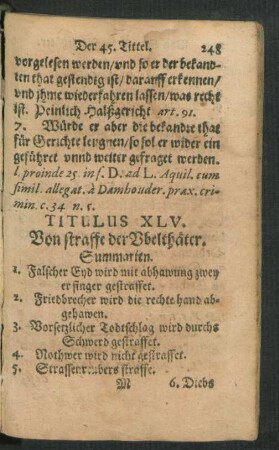 Der 45. Tittel. 248
vorgelesen werden/ vnd so er der bekand-
ten that gestendig ist/ darauff erkennen/
vnd jhme wiederfahren lassen/ was recht
ist. Peinlich Halßgericht art. 91.
7. Würde er aber die bekandte that
für Gerichte leugnen/ so sol er wider ein
geführet vnnd weiter gefraget werden.
l. proinde 25. in f. D. ad L. Aquil. cum
simil. allegat. à Damhouder. prax. cri-
min. c. 34 n. 5.
TITULUS XLV.
Von straffe der Vbelthäter.
Summarien.
1. Falscher Eyd wird mit abhawung zwey
er finger gestraffet.
2. Friedbrecher wird die rechte hand ab-
gehawen.
3. Vorsetzlicher Todtschlag wird durchs
Schwerd gestraffet.
4. Nothwer wird nicht gestraffet.
5. Strassenraubers straffe.
M 6. Diebs